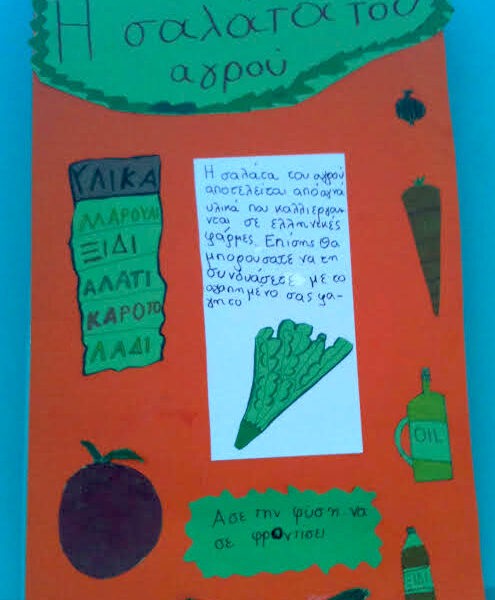 Η σαλατα του
αγρού
ΥΛΙΚΑ
ΜΑΡΟΥΛΙ
ΞΙΔΙ
ΑΛΑΤΙ
ΚΑΡΟΤΟ
ΛΑΔΙ
Η σαλάτα του αγρού
αποτελείται από αγνά
υλικά που καλλιεργου-
νται σε ελληνικές
φάρμες. Επίσης θα
μπορουσατε να τη
συνδυάσετε με το
αγαπημένο σας φα-
γητο
OIL
Ασε την φυση να
σε φροντισει
ΞΙΔΙ